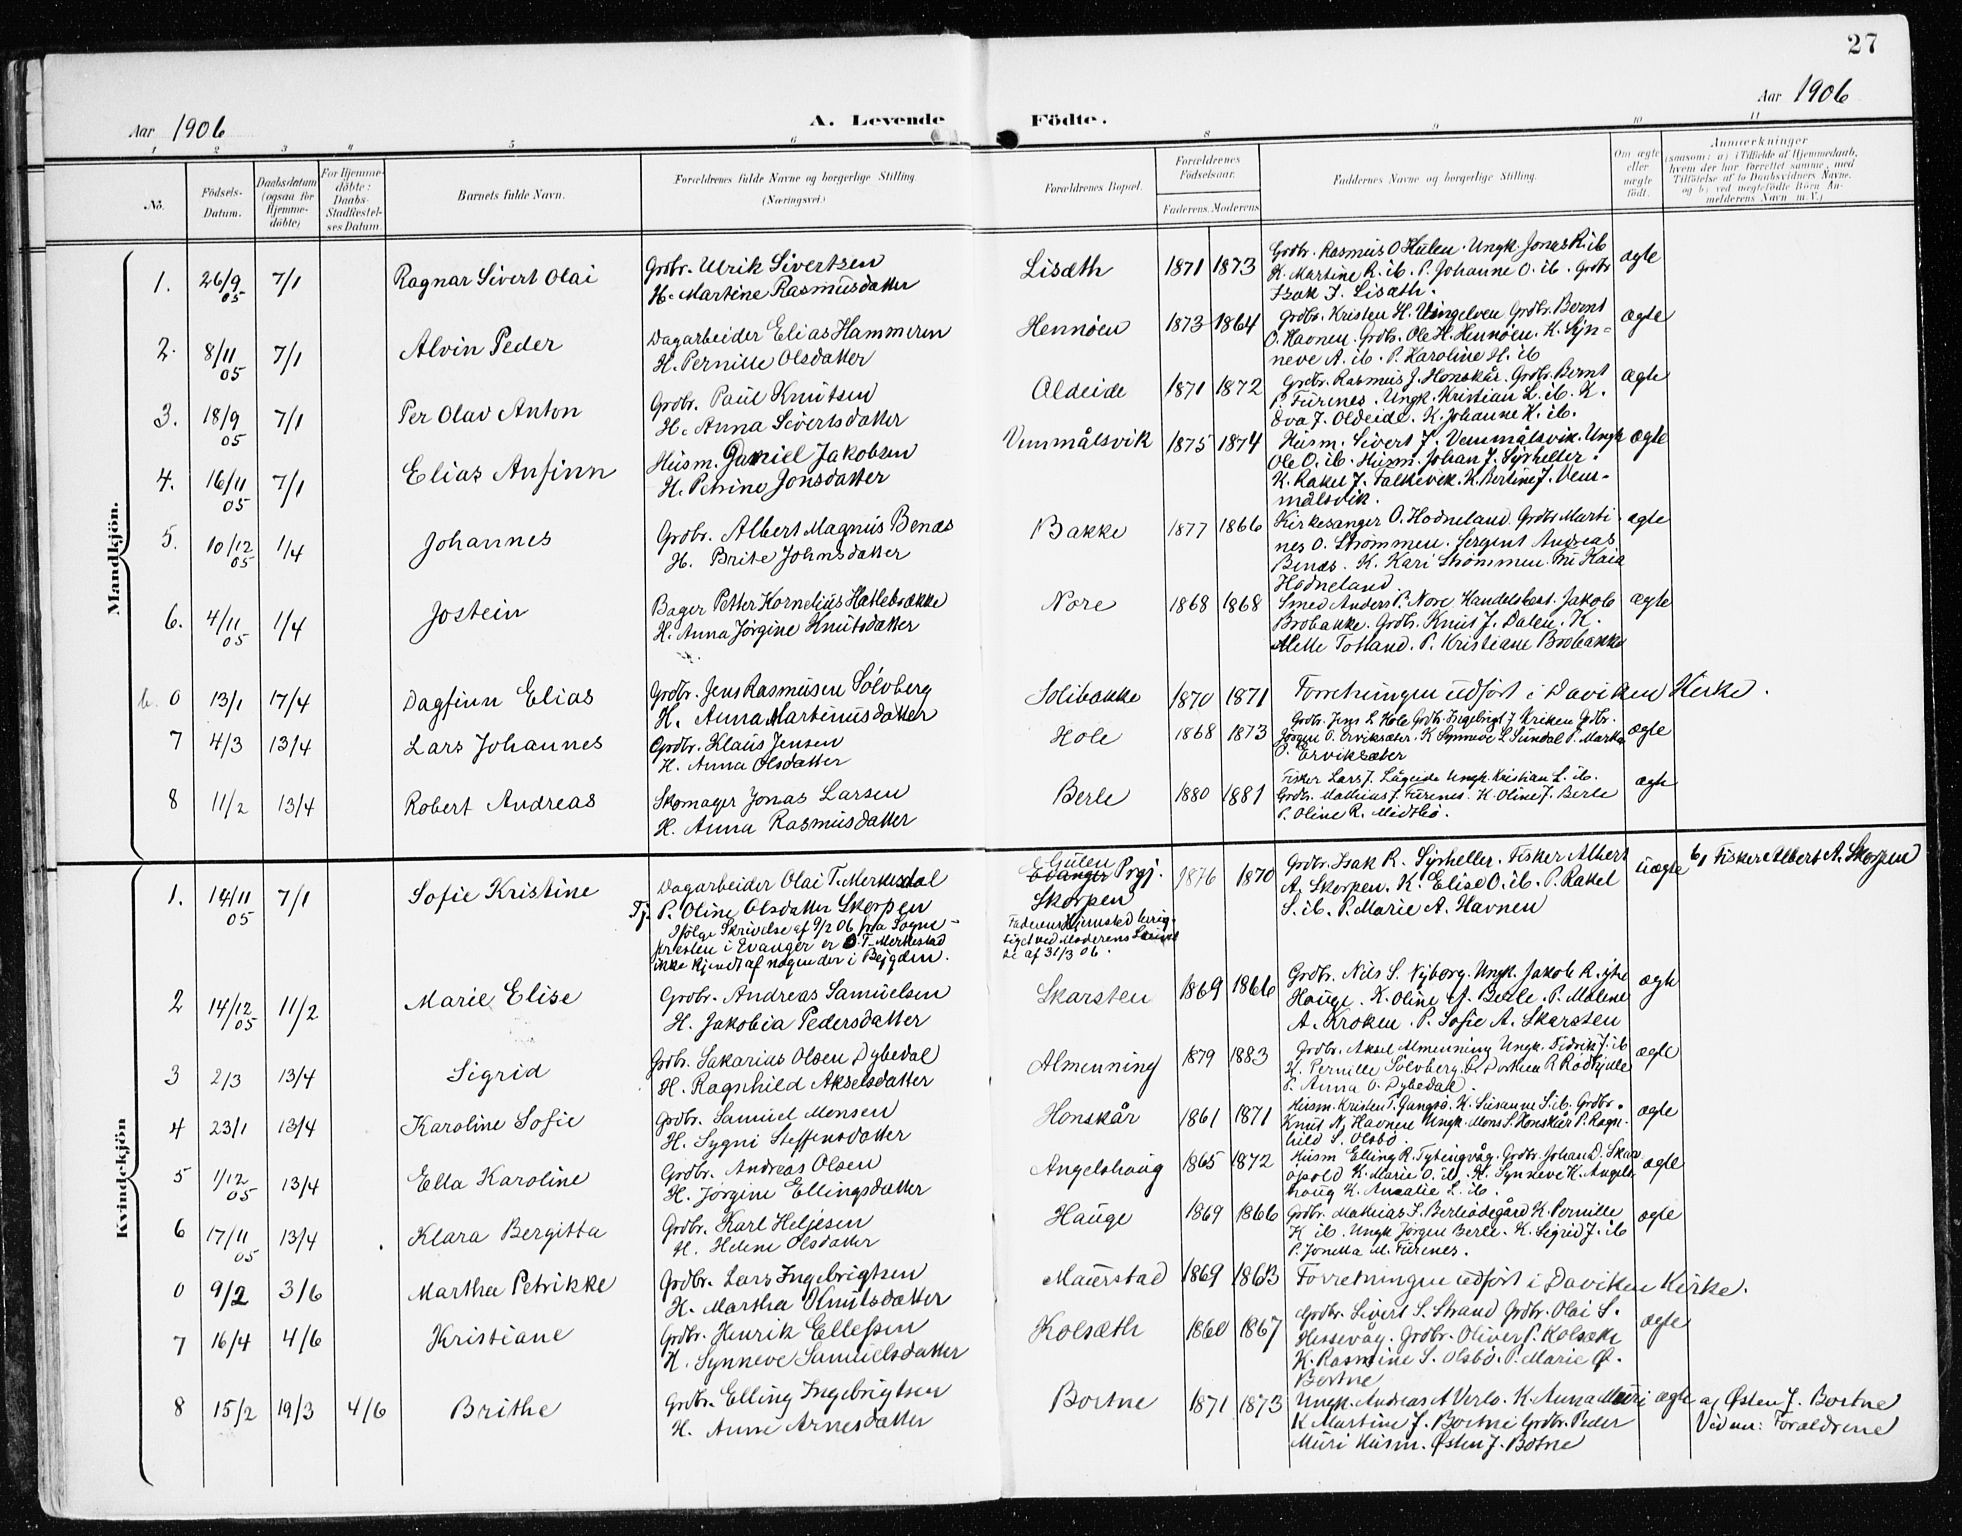 27
Aar 1906 A. Levende Födte. Aar 1906
1 2 3 4 5 6 8 9 10 11
No.
Födsels-
Datum.
Daabsdatum
(ogsaa for
Hjemme-
döbte)
For Hjemme-
döbte:
Daabs-
Stadfæstel-
ses Datum.
Barnets fulde Navn.
Forældrenes fulde Navne og borgerlige Stilling.
(Næringsvei.)
Forældrenes Bopæl.
Forældrenes
Födselsaar.
Faderens. Moderens.
Faddernes Navne og borgerlige Stilling.
Om ægte
eller
uægte
födt.
Anmærkninger
(saasom: a) i Tilfælde af Hjemmedaab,
hvem der har forrettet samme, med
Tilföielse af to Daabsvidners Navne,
og b) ved uægtefödte Börn An-
melderens Navn m. V.)
Mandkjön.
1. 26/9 05 7/1 Ragnar Sivert Olai
Grdbr. Ulrik Sivertsen
H. Martine Rasmusdatter
Lisæth 1871 1873
Grdbr. Rasmus O Hulen. Ungk. Jonas R. ib
K. Martine R. ib. P. Johanne O. ib. Grdbr
Isak J. Lisæth.
ægte
2. 8/11 05 7/1 Alvin Peder
Dagarbeider Elias Hammeren
H. Pernille Olsdatter
Hennöen 1873 1864
Grdbr. Kristen H. Vingelven Grdbr. Bernt
O. Havnen. Grdbr. Ole H. Hennöen. K. Syn-
neve A. ib. P. Karoline H. ib
ægte
3. 18/9 05 7/1 Per Olav Anton
Grdbr. Paul Knutsen
H. Anna Sivertsdatter
Oldeide 1871 1872
Grdbr. Rasmus J. Honskår. Grdbr. Bernt
P. Furenes. Ungk. Kristian L. ib. K.
Eva J. Oldeide. K. Johanne K. ib.
ægte
4. 16/11 05 7/1 Elias Anfinn
Husm. Daniel Jakobsen
H. Petrine Jonsdatter
Vemmålsvik 1875 1874
Husm. Sivert J. Vemmålsvik. Ungk
Ole O. ib. Husm. Johan J. Syrheller.
K. Rakel J. Falkevik. K. Bertine J. Vem-
målsvik.
ægte
5. 10/12 05 1/4 Johannes
Grdbr. Albert Magnus Benæs
H. Brite Johnsdatter
Bakke 1877 1866
Kirkesanger O. Hodneland. Grdbr. Marti-
nes O. Strömmen. Sergent Andreas
Benæs. K. Kari Strömmen. Fru Kaia
Hodneland
ægte
6. 4/11 05 1/4 Jostein
Bager Petter Kornelius Hatlebrække
H. Anna Jörgine Knutsdatter
Nore 1868 1868
Smed Anders P. Nore. Handelsbest. Jakob
Brobakke. Grdbr. Knut J. Dalen. K.
Mette Totland. P. Kristiane Brobakke
ægte
6. 0 13/1 17/4 Dagfinn Elias
Grdbr. Jens Rasmusen Sölvberg
H. Anna Martinusdatter
Solibakke 1870 1871
Forretningen udfört i Daviken Kirke.
7 4/3 13/4 Lars Johannes
Grdbr. Klaus Jensen
H. Anna Olsdatter
Hole 1868 1873
Grdbr. Jens L Hole Grdbr. Ingebrigt J Kriken Grdbr.
Jörgen O. Erviksæter. K Synneve L Sundal P. Marta
O. Erviksæter
ægte
8 11/2 13/4 Robert Andreas
Skomager Jonas Larsen
H. Anna Rasmusdatter
Berle 1880 1881
Fisker Lars J. Lågeide Ungk. Kristian L. ib.
Grdbr. Mathias J. Furenes. K. Oline J. Berle
P. Oline R. Midtbö.
ægte
Kvindekjön
1. 14/11 05 7/1 Sofie Kristine
Dagarbeider Olai T. Merkesdal
Tj. P. Oline Olsdatter Skorpen
Ifölge Skrivelse af 9/2 06 fra Sogne-
præsten i Evanger er O. T. Merkestad
ikke kjendt af nogen der i Bejgden.
Gulen
Evanger Prgj.
Skorpen
Faderens Hjemstad berig-
tiget ved Moderens
af 31/3 06.
1876 1870
Grdbr. Isak R. Syrheller. Fisker Albert
A. Skorpen. K. Elise O. ib. P. Rakel
S. ib. P. Marie A. Havnen
uægte b) Fisker Albert A. Skorpen
2 14/12 05 11/2 Marie Elise
Grdbr. Andreas Samuelsen
H. Jakobia Pedersdatter
Skarsten 1869 1866
Grdbr. Nils S. Nyborg. Ungk. Jakob R. ytre
Hauge. K. Oline A. Berle. P. Malene
A. Kroken. P. Sofie A. Skarsten
ægte
3 2/3 13/4 Sigrid
Grdbr. Sakarias Olsen Dybedal
H. Ragnhild Akselsdatter
Almenning 1879 1883
Grdbr. Aksel Almenning Ungk. Fedrik J. ib
K. Pernille Sölvberg P. Dorthea R Rödkjelle
P. Anna O. Dybedal.
ægte
4 23/1 13/4 Karoline Sofie
Grdbr. Samuel Monsen
H. Sygni Steffensdatter
Honskår 1861 1871
Husm. Kristen P. Gangsö. K. Susanne S. ib. Grdbr.
Knut N. Havnen Ungk. Mons S. Honskår P. Ragn-
hild S. Olsbö.
ægte
5 1/12 05 13/4 Ella Karoline
Grdbr. Andreas Olsen
H. Jörgine Ellingsdatter
Angelshaug 1865 1872
Husm. Elling R. Tytingvåg. Grdbr. Johan D. Skaa
öpold K. Marie O. ib. K. Synneve K. Angels-
haug K. Amalie L. ib.
ægte
6 17/11 05 13/4 Klara Bergitta
Grdbr. Karl Heljesen
H. Helene Olsdatter
Hauge 1869 1866
Grdbr. Mathias S. Berleödegård K. Pernille
K ib. Ungk Jörgen Berle. K. Sigrid J. ib
P. Jonetta M. Furenes.
ægte
0 9/2 3/6 Martha Petrikke
Grdbr. Lars Ingebrigtsen
H. Martha Knutsdatter
Maurstad 1869 1863
Forretningen udfört i Daviken Kirke.
7 16/4 4/6 Kristiane
Grdbr. Henrik Ellefsen
H. Synneve Samuelsdatter
Kolsæth 1860 1867
Grdbr. Sivert S. Strand Grdbr. Olai S.
Hessevåg. Grdbr. Oliver P. Kolsæth
K. Rasmine S. Olsbö. P. Marie Ø.
Bortne
ægte
8 15/2 19/3 4/6 Brithe
Grdbr. Elling Ingebrigtsen
H. Anne Arnesdatter
Bortne 1871 1873
Ungk. Andreas A Verlo. K. Anna Muri
K Martine J. Bortne Grdbr. Peder
Muri Husm. Østen J. Botne
ægte a) Østen J. Bortne
Vidner: Forældrene